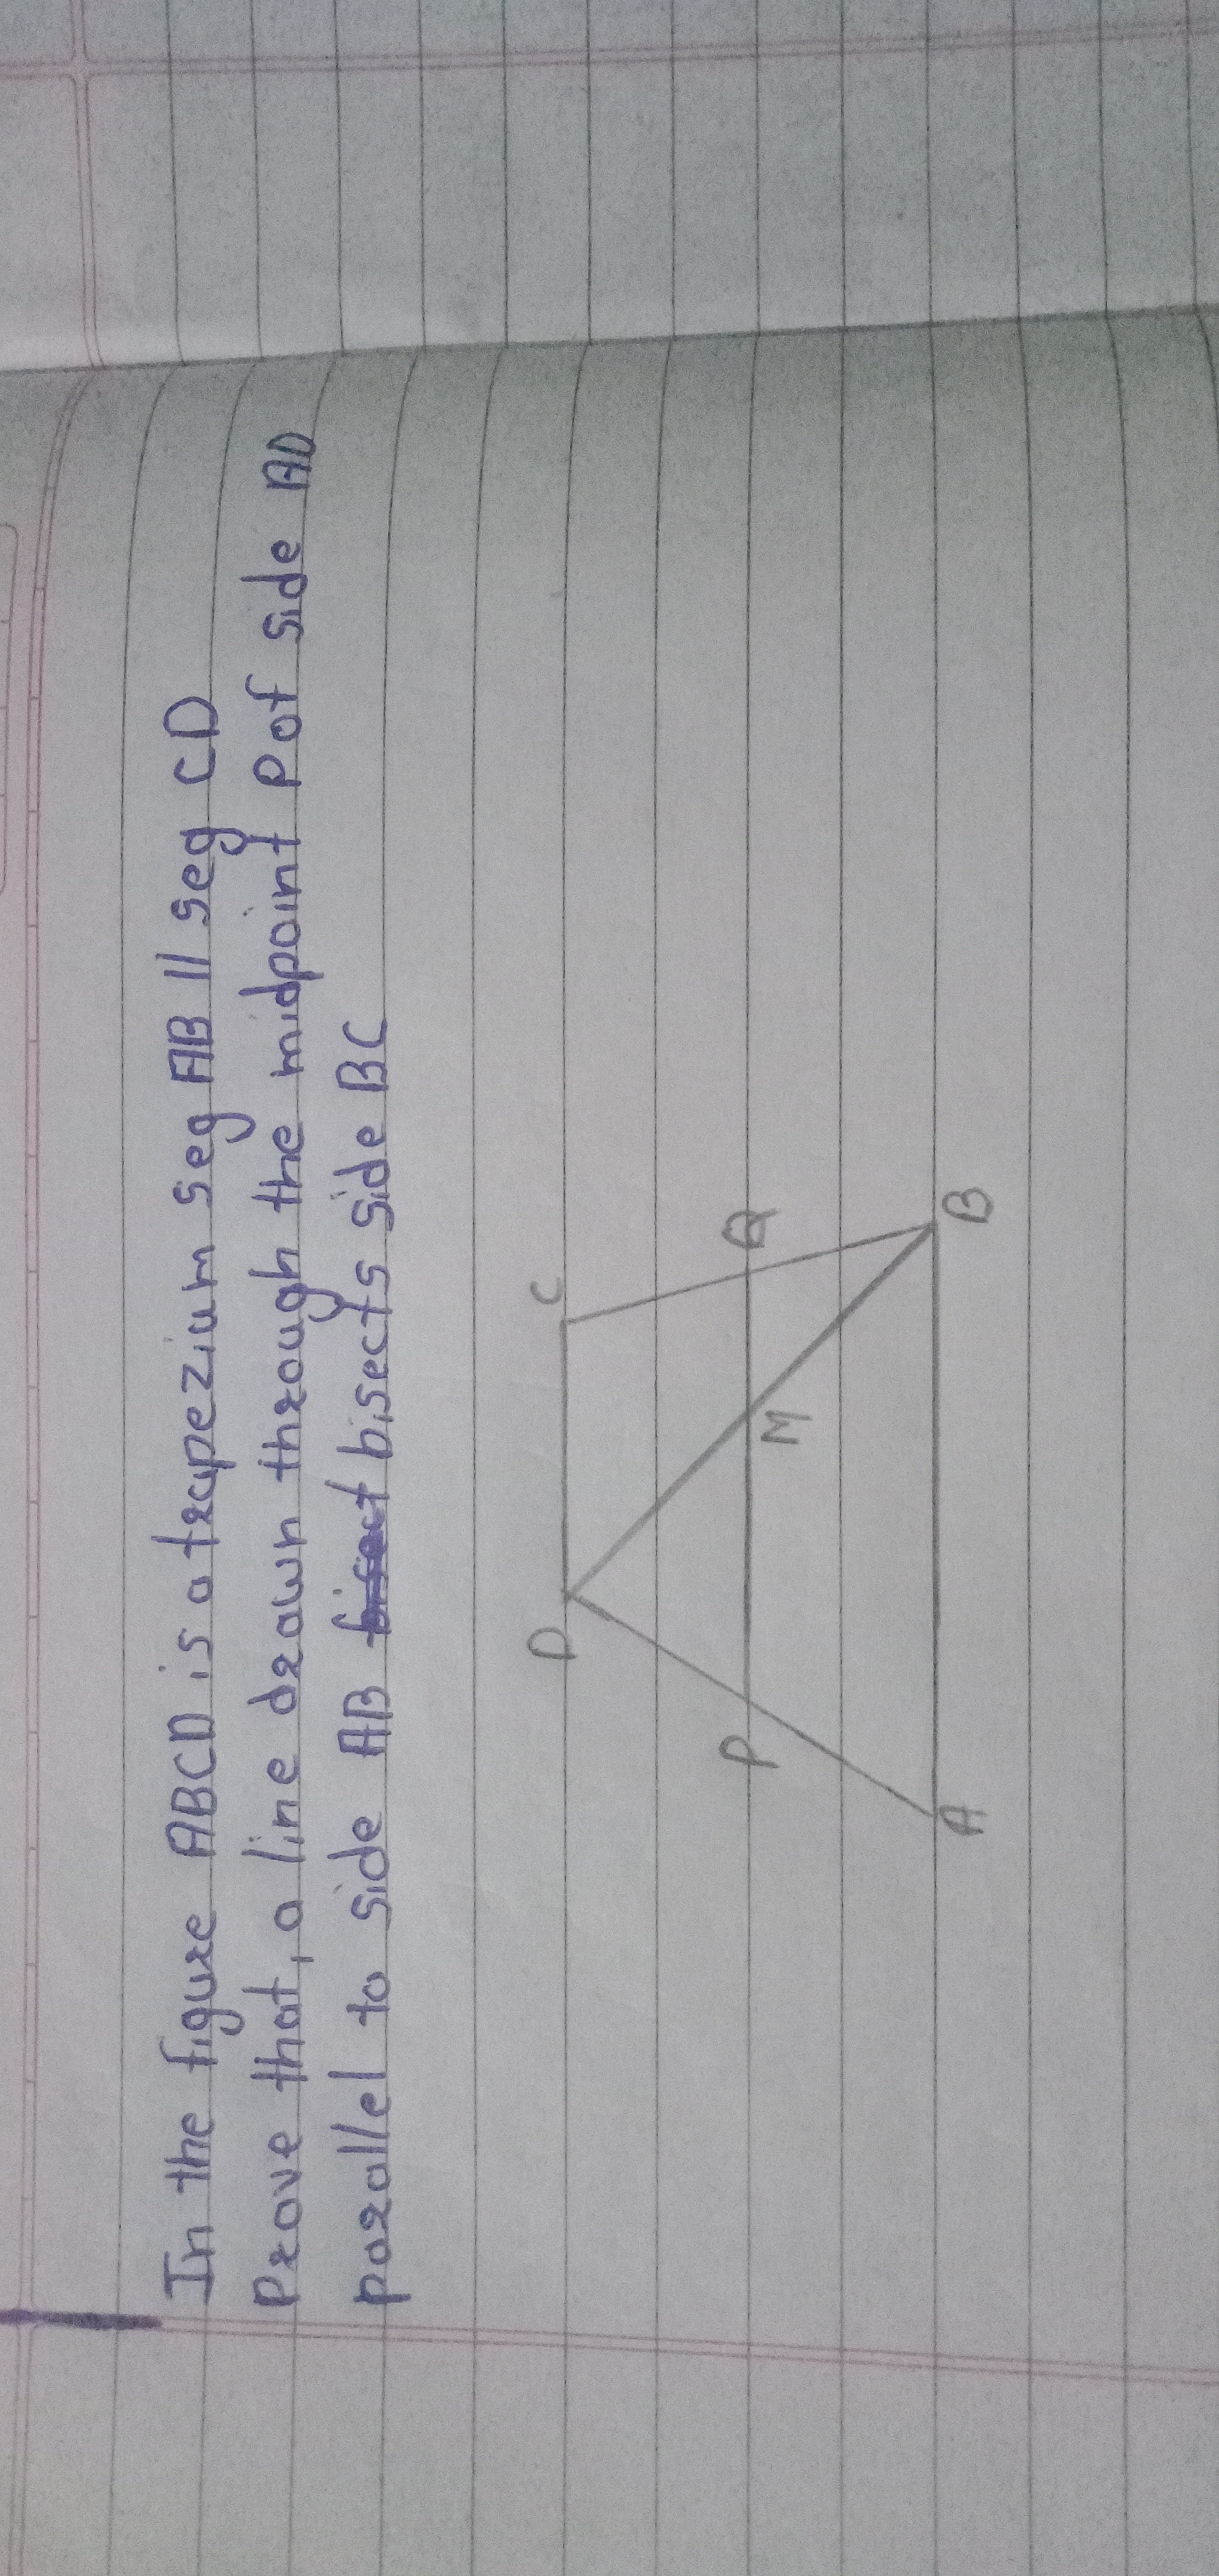 In the figure ABCD is a trapezium seg AB || seg CD
Prove that, a line drawn through the midpoint P of side AD
parallel to side AB bisect bisects side BC
D C
P M Q
A B